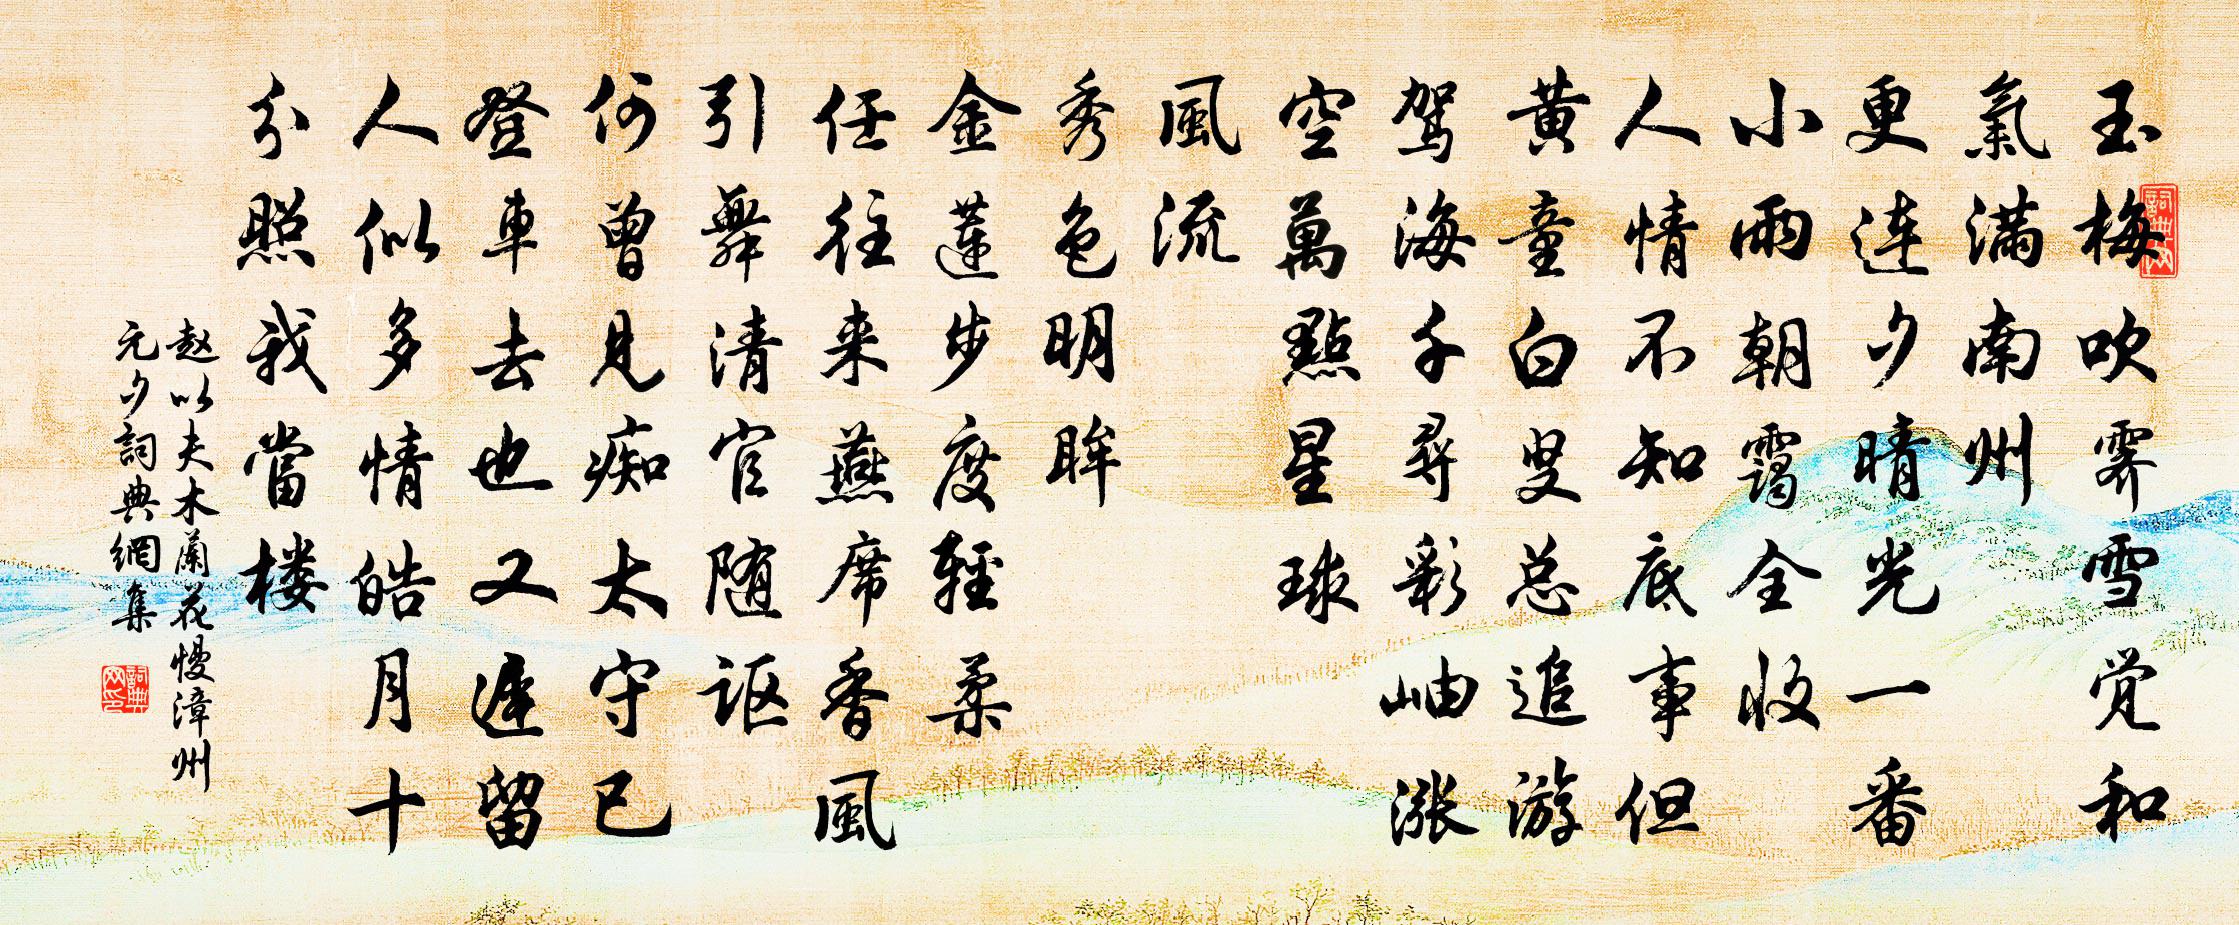 玉梅吹霽雪觉和
氣满南州
更连夕晴光一番
小雨朝靄全收
人情不知底事但
黄童白叟总追游
驾海千尋彩岫涨
空萬點星球
風流
秀色明眸
金莲步度轻柔
任往来燕席香風
引舞清官随讴
何曾見痴太守已
登車去也又遲留
人似多情皓月十
分照我當楼
赵以夫木蘭花慢漳州
元夕詞典網集
詞典网
詞典网印